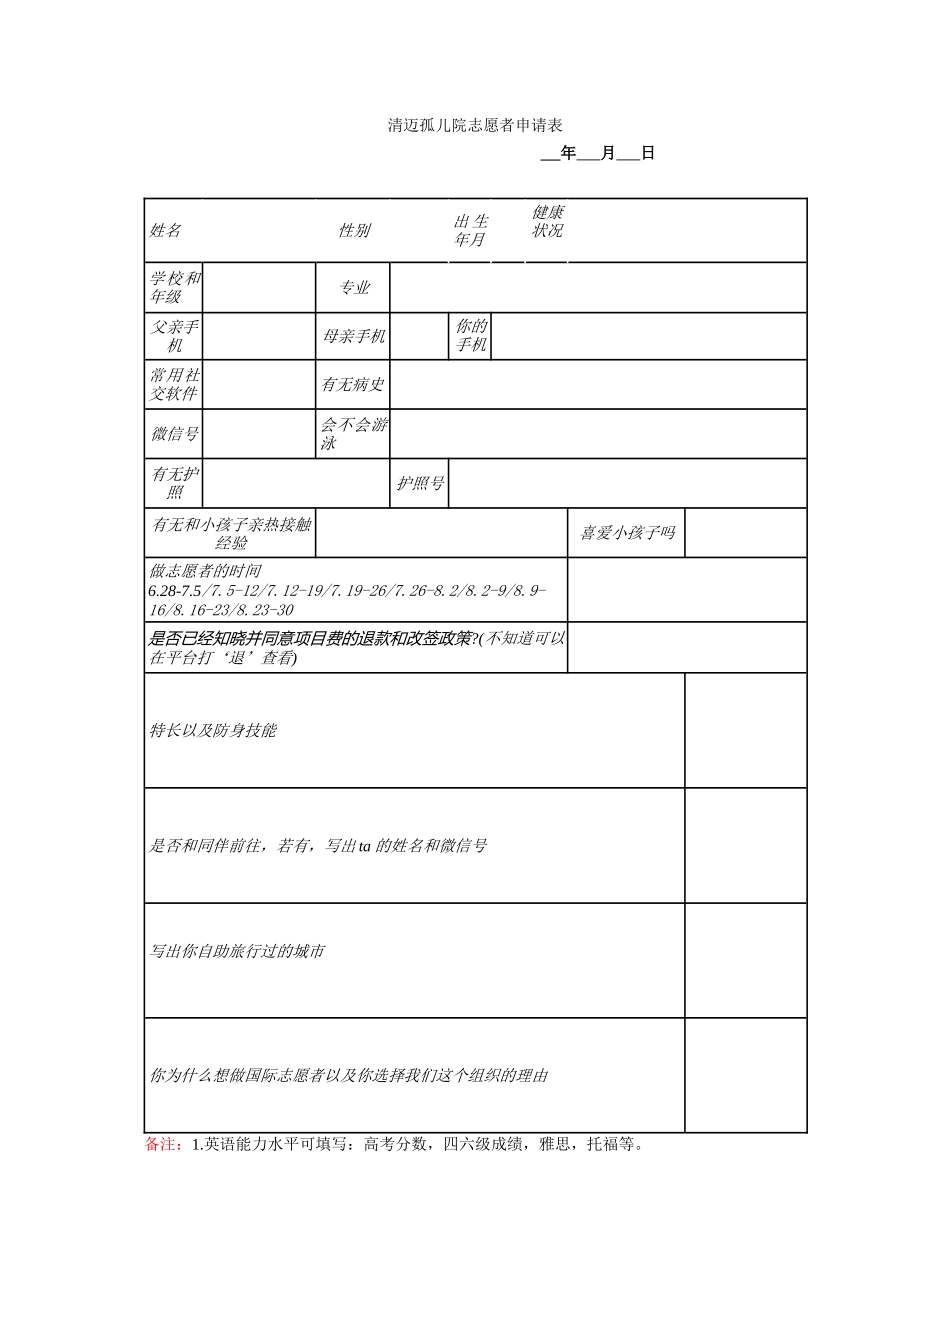 清迈孤儿院志愿者申请表
__年___月___日
姓名 性别 出 生 健康
年月 状况
学校和 专业
年级
父亲手 母亲手机 你的
机 手机
常用社 有无病史
交软件
微信号 会不会游
泳
有无护 护照号
照
有无和小孩子亲热接触 喜爱小孩子吗
经验
做志愿者的时间
6.28-7.5/7.5-12/7.12-19/7.19-26/7.26-8.2/8.2-9/8.9-
16/8.16-23/8.23-30
是否已经知晓并同意项目费的退款和改签政策?(不知道可以
在平台打‘退’查看)
特长以及防身技能
是否和同伴前往，若有，写出 ta 的姓名和微信号
写出你自助旅行过的城市
你为什么想做国际志愿者以及你选择我们这个组织的理由
备注：1.英语能力水平可填写：高考分数，四六级成绩，雅思，托福等。